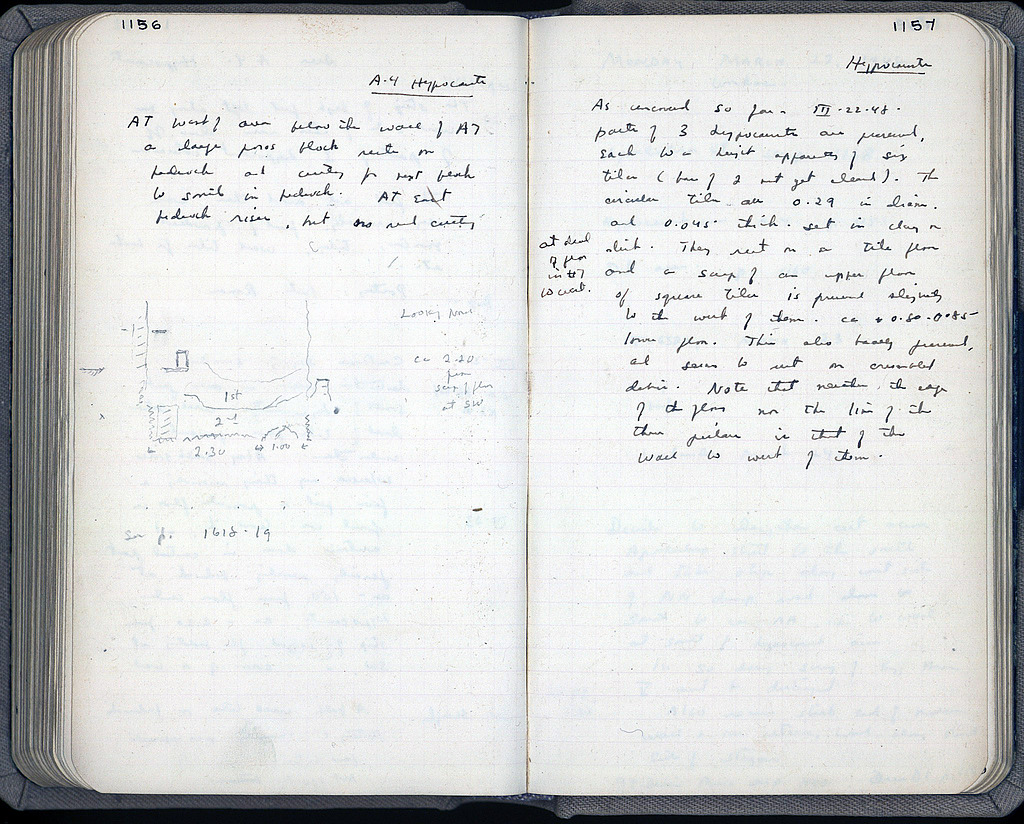 1156
A·4 Hypocauste
AT West of area below the wall of A7
a large poros block rests on
bedrock and cutting for next block
to south in bedrock. AT East
bedrock rises, but no real cutting
Looking North
ca 2.20
from
scarp of floor
at SW
1st
2nd
2.30
1.00
See p. 1618-19
1157
Hypocauste
As uncovered so far - III·22·48·
parts of 3 hypocausts are preserved,
each to a height apparently of six
tiles (base of 2 not yet cleared). The
circular tiles are 0.29 in diam.
and 0.045 thick. set in clay or
They rest on a tile floor
and a scrap of an upper floor
of square tiles is preserved slightly
to the west of them. ca 0.80-0.085
lower floor. This also barely preserved,
and seems to rest on crumbled
debris. Note that neither the edge
of the floor nor the line of the
three pillars is that of the
wall to west of them.
at level
of floor
in
to west.